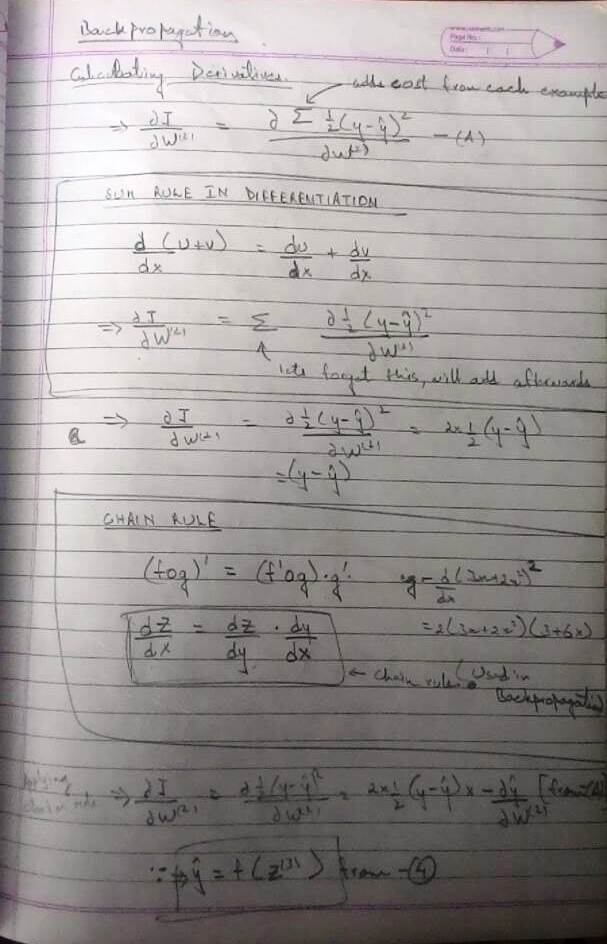 Backpropagation
Page No.:
Date: / /
Calculating Derivatives.
adds cost from each example
⇒ ∂J/∂W⁽²⁾ = ∂ Σ ½(y-ŷ)² / ∂W⁽²⁾ — (A)
SUM RULE IN DIFFERENTIATION
d/dx (u+v) = du/dx + dv/dx
⇒ ∂J/∂W⁽²⁾ = Σ ∂ ½(y-ŷ)² / ∂W⁽²⁾
lets forget this, will add afterwards
⇒ ∂J/∂W⁽²⁾ = ∂ ½(y-ŷ)² / ∂W⁽²⁾ = 2×½(y-ŷ)
= (y-ŷ)
CHAIN RULE
(fog)' = (f'og)·g' eg - d/dx (3x+2x³)²
dz/dx = dz/dy · dy/dx = 2(3x+2x³)(3+6x)
← Chain rule (Used in
Backpropagation)
Applying
chain rule ⇒ ∂J/∂W⁽²⁾ = ∂ ½(y-ŷ)² / ∂W⁽²⁾ = 2×½(y-ŷ) × -∂ŷ/∂W⁽²⁾ [from
∵ ŷ = f(z⁽³⁾) from - ④